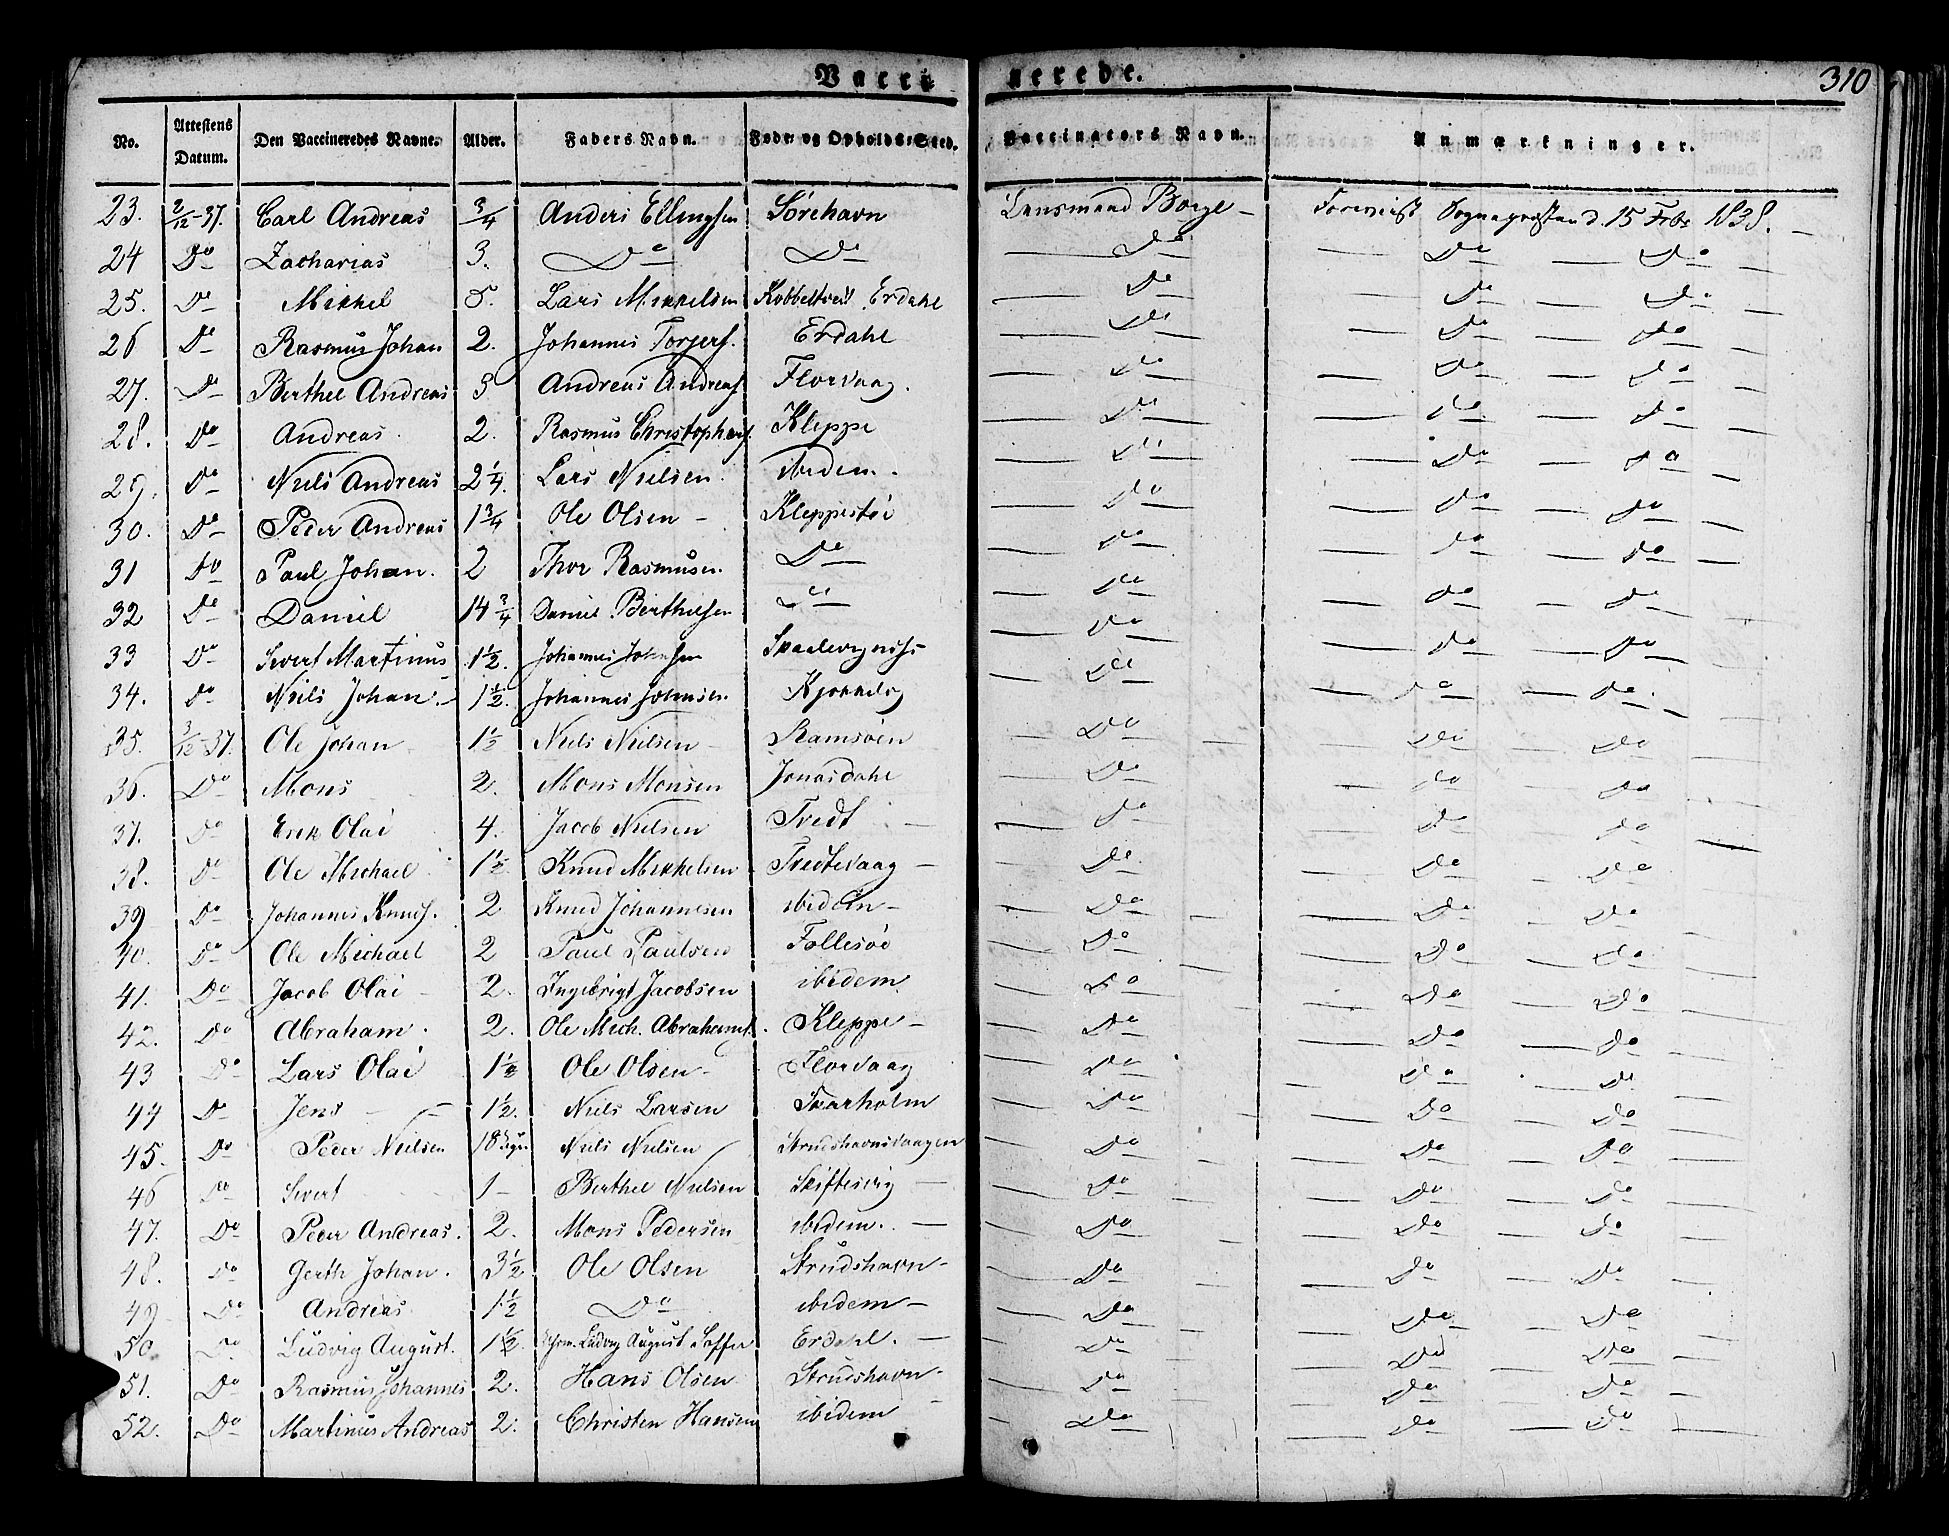 Vacci nerede.
310
No. Attestens Datum. Den Vaccineredes Navne. Alder. Faders Navn. Føde- og Opholds-Sted. Vaccinators Navn. Anmærkninger.
23. 2/12-37. Carl Andreas 3/4 Anders Ellingsen Sørehavn Lensmand Borge - Foreviist Sognepræsten d. 15 Febr 1838. -
24 Do Zacharias 3. Do Do - Do - Do - Do -
25. Do Mikkel 5. Lars Mikkelsen Kobbeltveit Erdahl - Do - Do - Do -
26 Do Rasmus Johan 2. Johannes Torgers. Erdahl - Do - Do - Do -
27. Do Berthel Andreas 5 Andreas Andreas. Florvaag. - Do - Do - Do -
28. Do Andreas. 2. Rasmus Christophers. Kleppe - Do - Do - Do -
29. Do Niels Andreas 2 1/4. Lars Nielsen. ibidem. - Do - Do - Do -
30. Do Peder Andreas 1 3/4 Ole Olsen - Kleppestøe - Do - Do - Do -
31 Do Paul Johan. 2 Thor Rasmusen Do - Do - Do - Do -
32 Do Daniel 14 3/4 Daniel Berthelsen Do - Do - Do - Do -
33 Do Sivert Martinus 1 1/2. Johannes Johnsen - Do - Do - Do -
34. Do Niels Johan. - 1 1/2. Johannes Johnsen Kjøkkelvig - Do - Do - Do -
35. 3/12-37. Ole Johan 1 1/2 Niels Nielsen - Ramsøen - Do - Do - Do -
36. Do Mons 2. Mons Monsen Jonasdahl - Do - Do - Do -
37. Do Erik Olai 4. Jacob Nielsen Tvedt - Do - Do - Do -
38. Do Ole Michael 1 1/2. Knud Mikkelsen Tvedtevaag - Do - Do - Do -
39 Do Johannes Knuds. 2 Knud Johannesen ibidem - Do - Do - Do -
40. Do Ole Michael 2 Paul Paulsen Follesøe - Do - Do - Do -
41. Do Jacob Olai 2. Ingebrigt Jacobsen ibidem - Do - Do - Do -
42. Do Abraham. 2. Ole Mich. Abrahams. Kleppe - Do - Do - Do -
43 Do Lars Olai 1 1/2 Ole Olsen - Florvaag - Do - Do - Do -
44 Do Jens - 1 1/2. Niels Larsen Tvarholm - Do - Do - Do -
45. Do Peder Nielsen 18 Niels Nielsen Strudshavnsvaagen - Do - Do - Do -
46 Do Sivert 1 - Berthel Nielsen Skiftesvig - Do - Do - Do -
47. Do Peder Andreas. 2. Mons Pedersen ibidem. - Do - Do - Do -
48. Do Gerth Johan. 3 1/2 Ole Olsen Strudshavn - Do - Do - Do -
49 Do Andreas 1 1/2 Do ibidem - Do - Do - Do -
50. Do Ludvig August. 1 1/2. Ludvig August Erdahl. - Do - Do - Do -
51. Do Rasmus Johannes 2. Hans Olsen Strudshavn - Do - Do - Do -
52. Do Martinus Andreas 2. Christen Hansen ibidem - Do - Do - Do